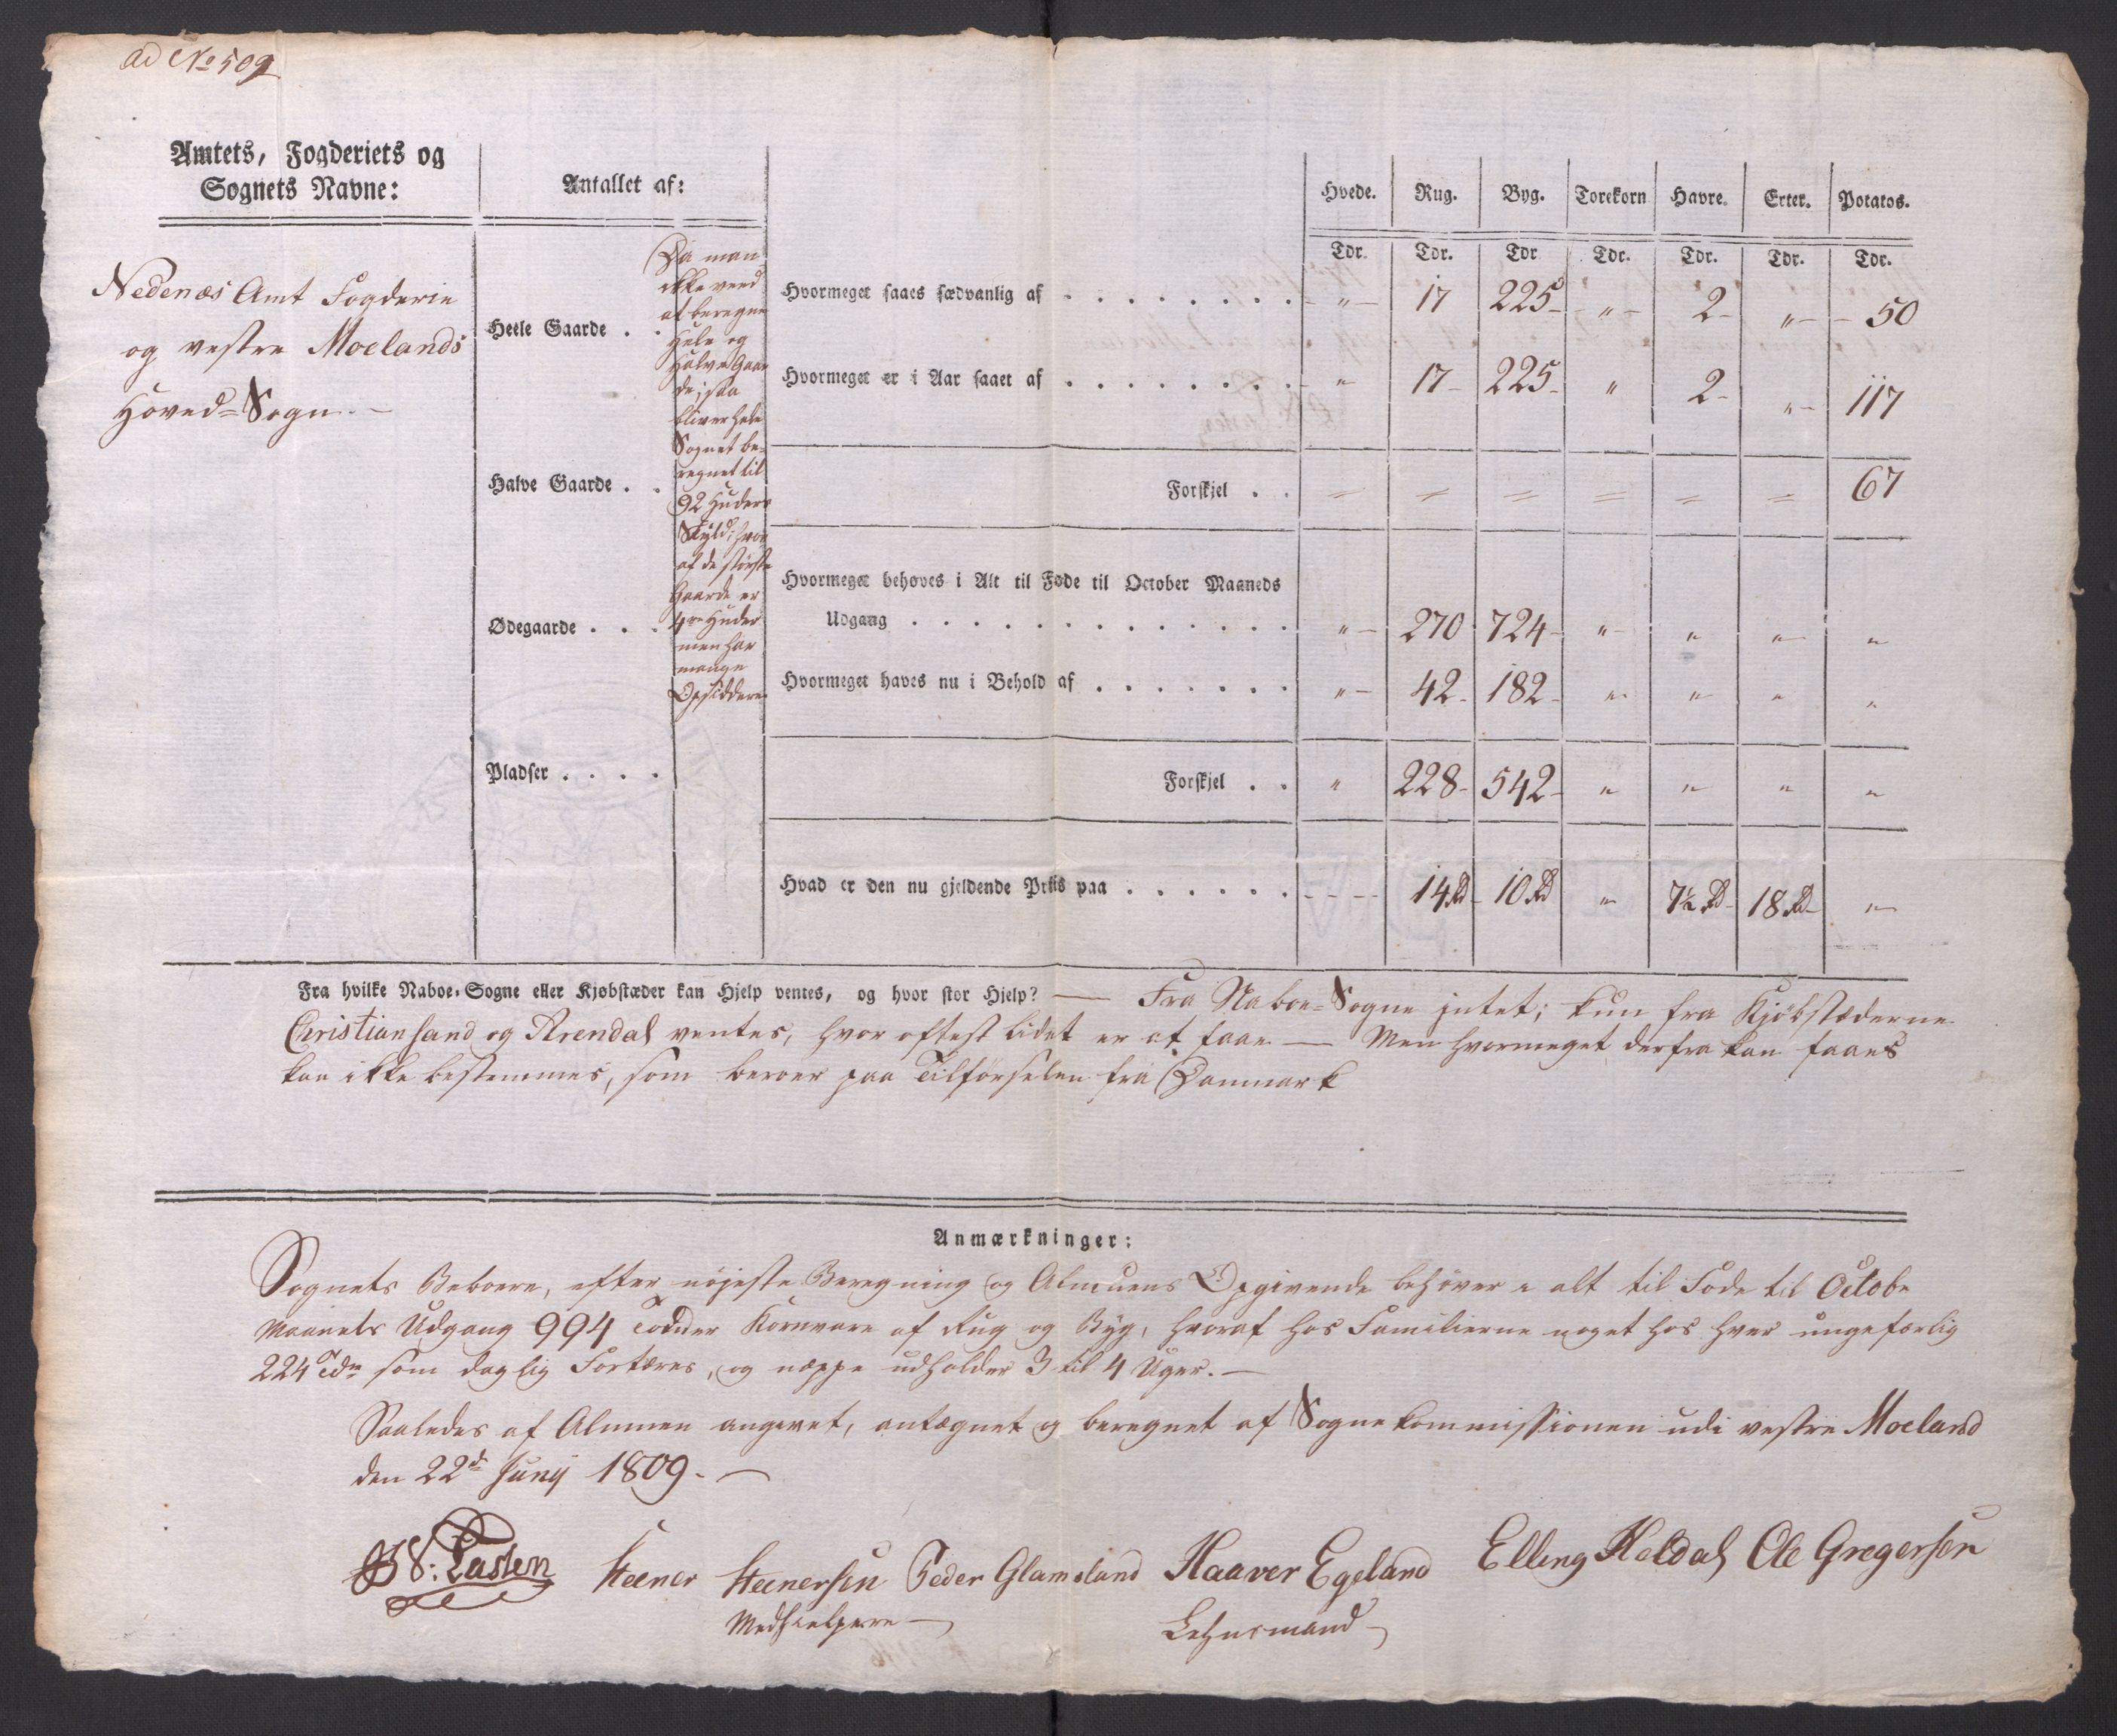 ad No 509
Amtets, Fogderiets og
Sognets Navne:
Antallet af:
Hvede. Rug. Byg. Torekorn Havre. Erter. Potatos.
Tdr. Tdr. Tdr Tdr. Tdr. Tdr. Tdr.
Nedenæs Amt Fogderie
og vestre Moelands
Hoved=Sogn. –
Heele Gaarde . .
Halve Gaarde . .
Ødegaarde . . .
Pladser . . . .
Da man
ikke veed
at beregne
Hele og
Halve Gaar
de; saa
bliver hele
Sognet be-
regnet til
92 Huders
Skyld; hvor
af de største
Gaarde er
4re Huder
men har
mange
Opsiddere
Hvormeget saaes sædvanlig af . . . . . . . . " 17 225 " 2 " 50
Hvormeget er i Aar saaet af . . . . . . . . " 17 225 " 2 " 117
Forskjel . . = = = = = = 67
Hvormeget behøves i Alt til Føde til October Maaneds
Udgang . . . . . . . . . . . . . " 270 724 " " " "
Hvormeget haves nu i Behold af . . . . . . . " 42 182 " " " "
Forskjel . . " 228 542 " " " "
Hvad er den nu gjeldende Priis paa . . . . . . . - - - 14 Rd 10 Rd " 7½ Rd 18 Rd "
Fra hvilke Naboe-Sogne eller Kjøbstæder kan Hjelp ventes, og hvor stor Hjelp? — Fra Naboe=Sogne intet; kun fra Kjøbstæderne
Christiansand og Arendal ventes, hvor oftest lidet er at faae — Men hvormeget derfra kan faaes
kan ikke bestemmes, som beroer paa Tilførselen fra Danmark
Anmærkninger:
Sognets Beboere, efter nøjeste Beregning og Almuens Opgivende behøver i alt til Føde til Octobr
Maanets Udgang 994 Tønder Kornvare af Rug og Byg, hvoraf hos Familierne noget hos hver ungefærlig
224 Tdr som daglig Fortæres, og neppe udholder 3 til 4 Uger. —
Saaledes af Almuen angivet, antægnet og beregnet af Sognekommissionen udi vestre Moeland
den 22d Junij 1809. —
Lasten Steener Steenersen Peder Glamsland Haaver Egeland Elling Heldal Ole Gregersen
Medhielpere — Lehnsmand